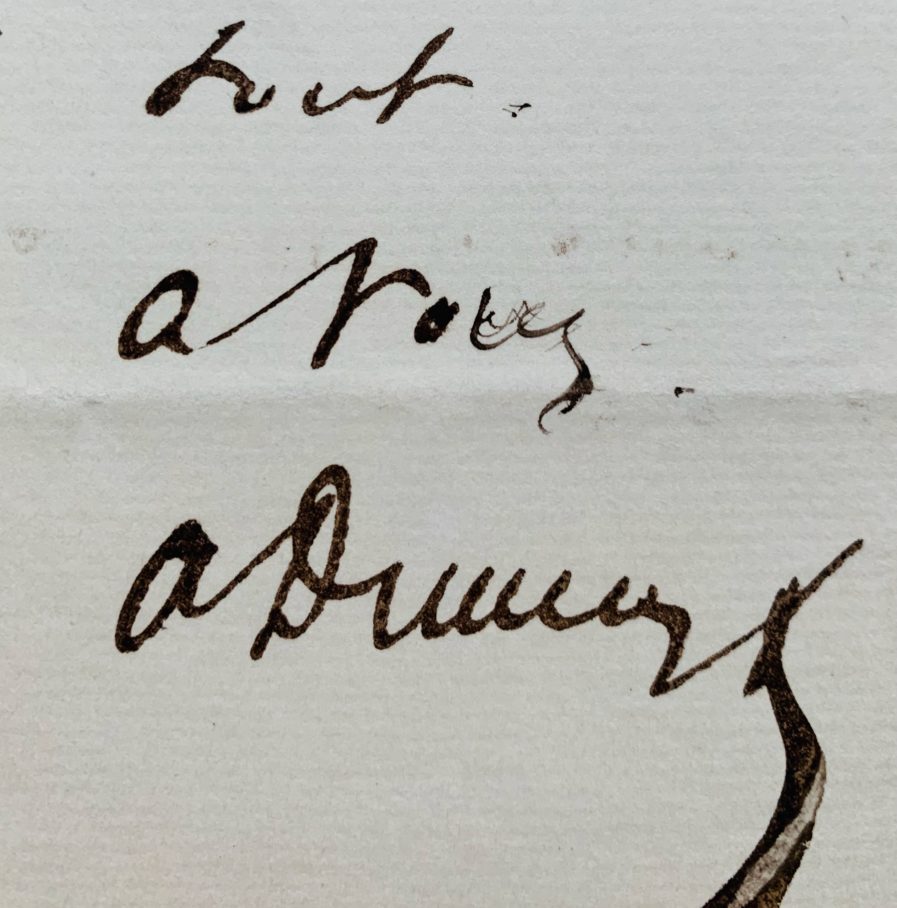 tout.
a vous.
ADumas